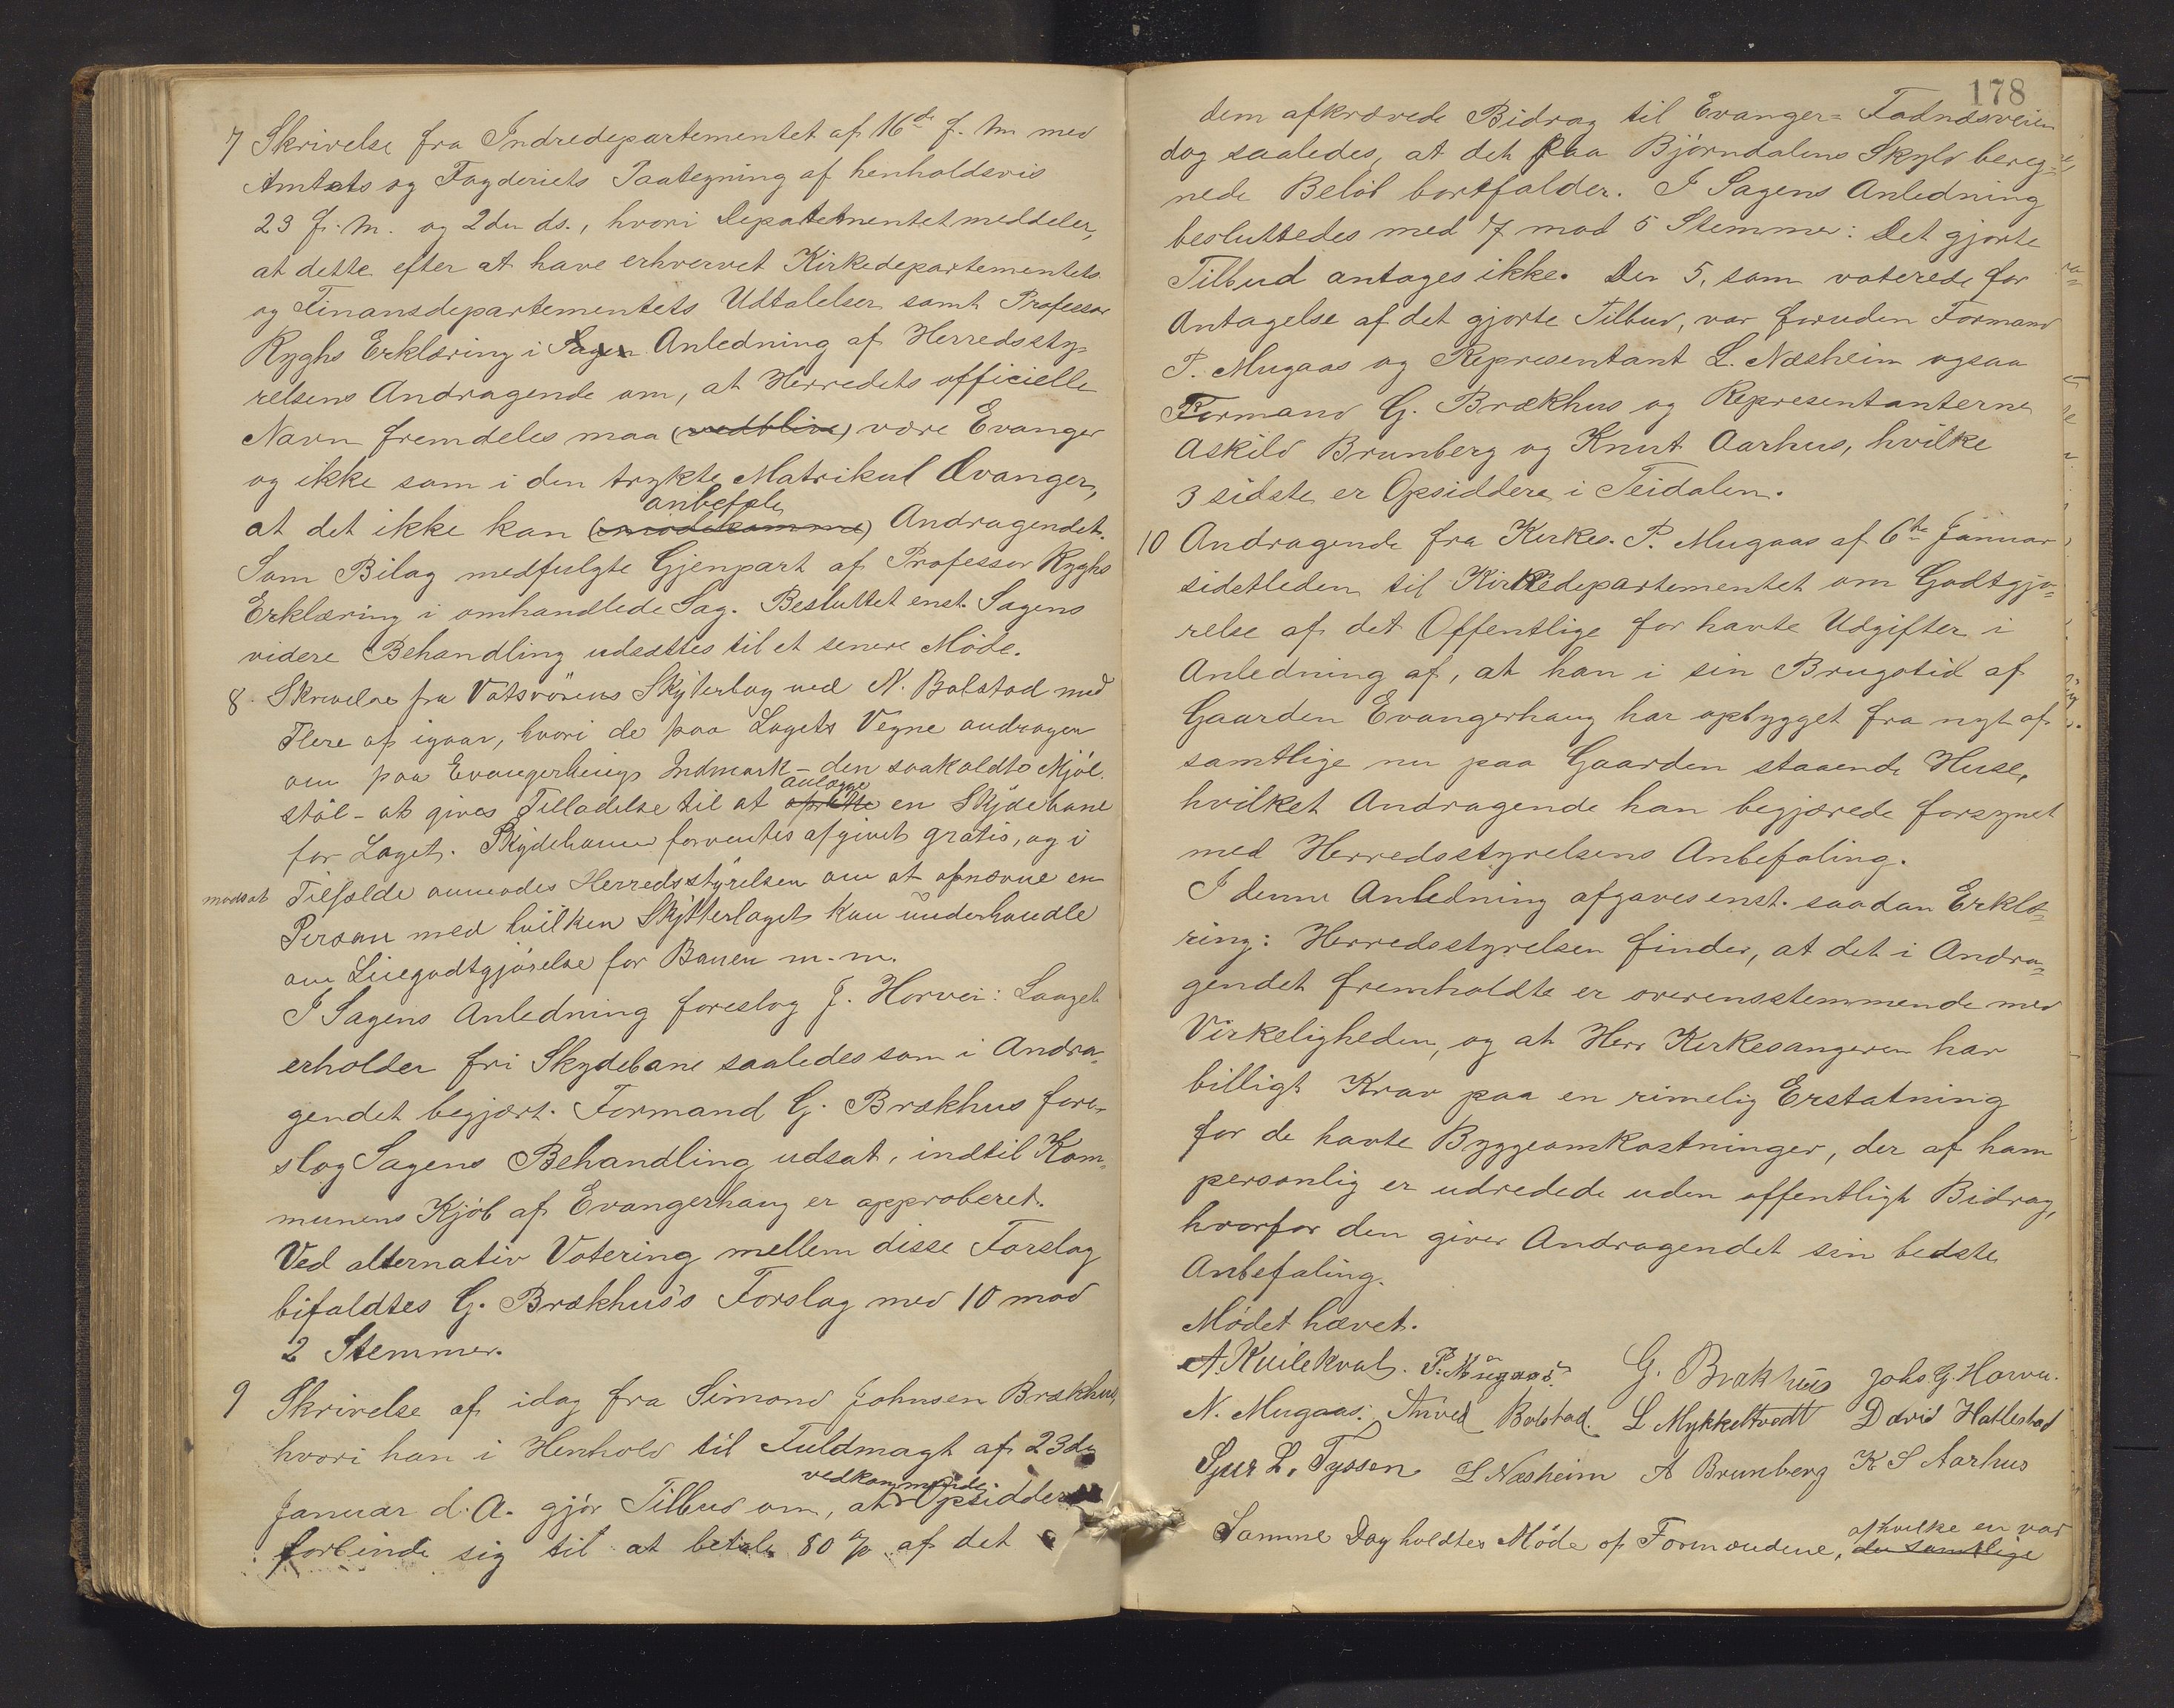 7 Skrivelse fra Indredepartementet af 16de f. M. med
Amtets og Fogderiets Paategning af henholdsvis
23 f. M. og 2den ds., hvori Departementet meddeler,
at dette efter at have erhvervet Kirkedepartementets
og Finansdepartementets Udtalelser samt Professor
Ryghs Erklæring i Sagen Anledning af Herredssty-
relsens Andragende om, at Herredets officielle
Navn fremdeles maa (vedblive) være Evanger
og ikke som i den trykte Matrikul Ævanger,
anbefale
at det ikke kan (imødekomme) Andragendet.
Som Bilag medfulgte Gjenpart af Professor Ryghs
Erklæring i omhandlede Sag. Besluttet enst. Sagens
videre Behandling udsættes til et senere Møde.
8 Skrivelse fra Vatsvörens Skytterlag ved N. Bolstad med
Flere af igaar, hvori de paa Lagets Vegne andrager
om paa Evangerhaugs Indmark - den saakaldte Mjöl-
anlægge
stöl - at gives Tilladelse til at oprette en Skydebane
for Laget. Skydebanen forventes afgivet gratis, og i
modsat Tilfælde anmodes Herredsstyrelsen om at opnævne en
Person med hvilken Skytterlaget kan underhandle
om Leiegodtgjörelse for Banen m.m.
I Sagens Anledning foreslog J. Horvei: Laaget
erholder fri Skydebane saaledes som i Andra-
gendet begjært. Formand G. Brækhus fore-
slog Sagens Behandling udsat, indtil Kom-
munens Kjöb af Evangerhaug er approberet.
Ved alternativ Votering mellem disse Forslag
bifaldtes G. Brækhus's Forslag med 10 mod
2 Stemmer.
9 Skrivelse af idag fra Simond Johnsen Brækhus,
hvori han i Henhold til Fuldmagt af 23de
vedkommende
Januar d. A. gjör Tilbud om, at Opsiddere
forbinde sig til at betale 80 % af det
178
dem afkrævede Bidrag til Evanger-Fadnæsveien
dog saaledes, at det paa Bjørndalens Skyld bereg-
nede Beløb bortfalder. I Sagens Anledning
besluttedes med 7 mod 5 Stemmer: Det gjorte
Tilbud antages ikke. De 5, som voterede for
Antagelse af det gjorte Tilbud, var foruden Formand
P. Mugaas og Representant L. Næsheim ogsaa
Formand G. Brækhus og Representanterne
Askild Brunberg og Knut Aarhus, hvilke
3 sidste er Opsiddere i Teidalen.
10 Andragende fra Kirkes. P. Mugaas af 6te Januar
sidstleden til Kirkedepartementet om Godtgjø-
relse af det Offentlige for havte Udgifter i
Anledning af, at han i sin Brugstid af
Gaarden Evangerhaug har opbygget fra nyt af
samtlige nu paa Gaarden staaende Huse,
hvilket Andragende han begjærede forsynet
med Herredsstyrelsens Anbefaling.
I denne Anledning afgaves enst. saadan Erklæ-
ring: Herredsstyrelsen finder, at det i Andra-
gendet fremholdte er overensstemmende med
Virkeligheden, og at Herr Kirkesangeren har
billigt Krav paa en rimelig Erstatning
for de havte Byggeomkostninger, der af ham
personlig er udredede uden offentligt Bidrag,
hvorfor den giver Andragendet sin bedste
Anbefaling.
Mødet hævet.
A. Kvilekval. P. Mugaas. G. Brækhus Johs. G. Horvei.
N. Mugaas. Anved Bolstad. L Mykkeltvedt David Hatlestad
Sjur L. Tyssen L Næsheim A Brunberg K S Aarhus
af hvilke en var
Samme Dag holdtes Möde af Formændene, der samtlige